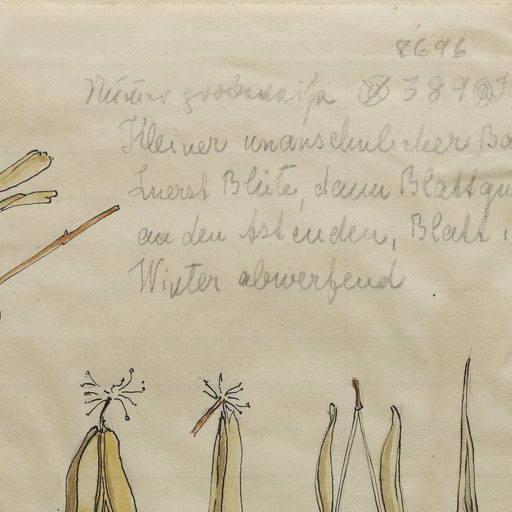 8696
389
Kleiner unanschulicher Ba
Zuerst Blüte, dann Blattqu
an den Ast enden, Blatt i
Winter abwerfend